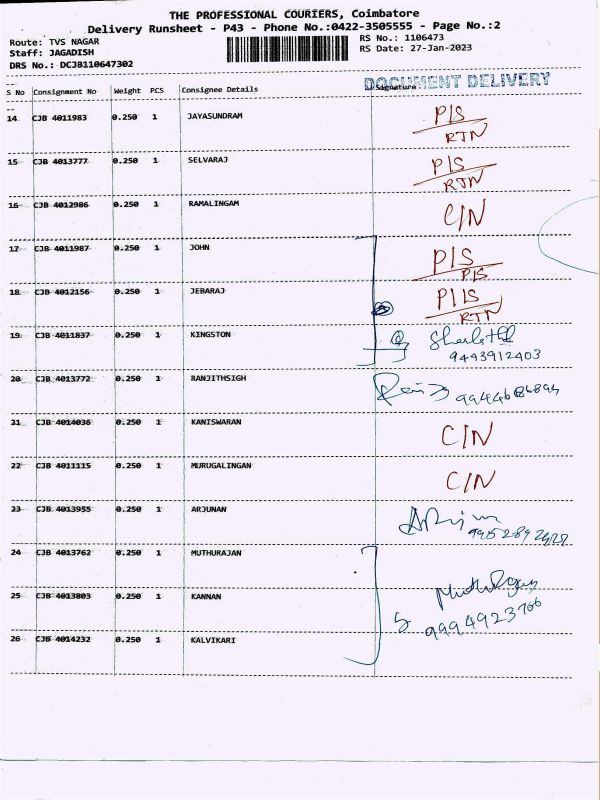 THE PROFESSIONAL COURIERS, Coimbatore
Delivery Runsheet - P43 - Phone No.:0422-3505555 - Page No.:2
Route: TVS NAGAR RS No.: 1106473
Staff: JAGADISH RS Date: 27-Jan-2023
DRS No.: DCJB110647302
DOCUMENT DELIVERY
S No Consignment No Weight PCS Consignee Details Signature
14 CJB 4011983 0.250 1 JAYASUNDRAM P/S
RTN
15 CJB 4013777 0.250 1 SELVARAJ P/S
RTN
16 CJB 4012986 0.250 1 RAMALINGAM C/N
17 CJB 4011987 0.250 1 JOHN P/S
P/S
18 CJB 4012156 0.250 1 JEBARAJ P/IS
RTN
19 CJB 4011837 0.250 1 KINGSTON
9443912403
20 CJB 4013772 0.250 1 RANJITHSIGH
21 CJB 4014036 0.250 1 KANISWARAN C/N
22 CJB 4011115 0.250 1 MURUGALINGAN C/N
23 CJB 4013955 0.250 1 ARJUNAN
24 CJB 4013762 0.250 1 MUTHURAJAN
25 CJB 4013803 0.250 1 KANNAN
9994923766
26 CJB 4014232 0.250 1 KALVIKARI